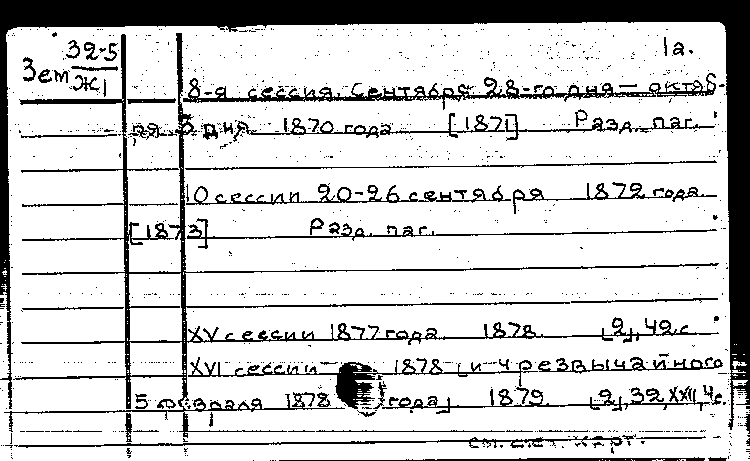 32-5 1а.
Зем Ж1
8-я сессия. Сентября 28-го дня — октяб-
ря 3 дня 1870 года [1871] Разд. паг.
10 сессии 20-26 сентября 1872 года
[1873] Разд. паг.
XV сессии 1877 года 1878. [2], 42 с.
XVI сессии 1878 [и чрезвычайного
5 февраля 1878 года] 1879. [2], 32, XXII, 4 с.
см. след. карт.